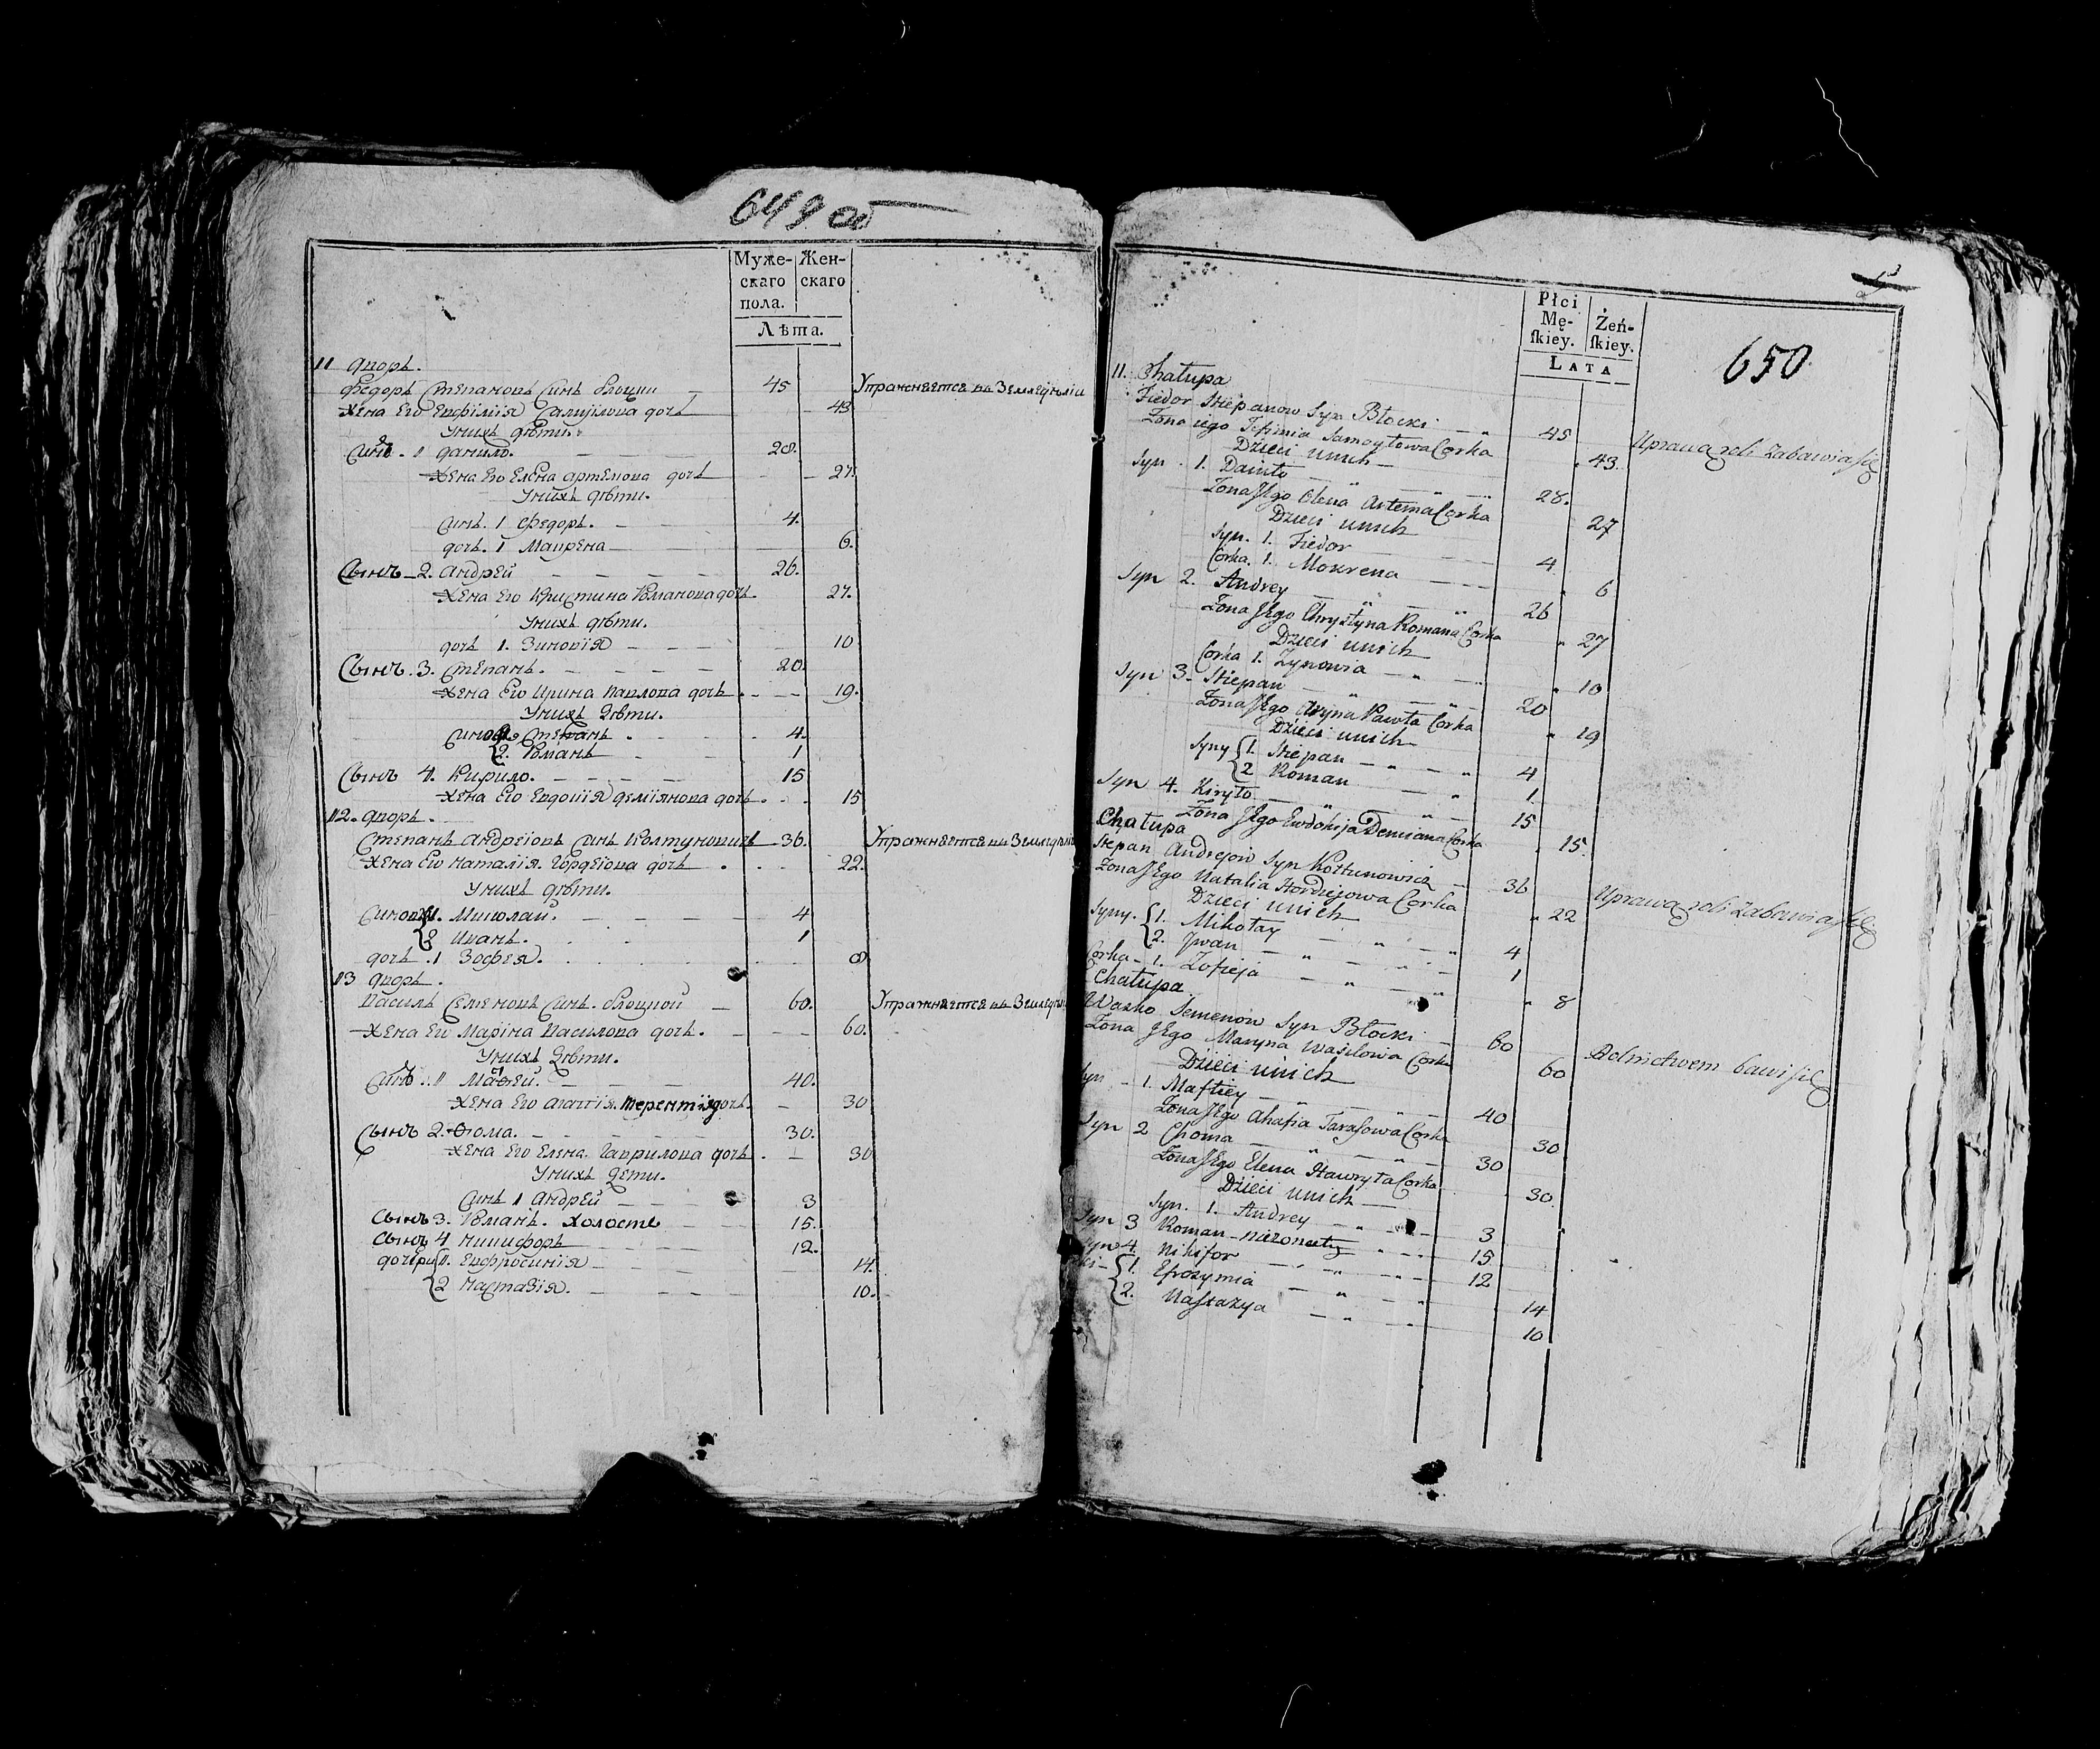 649 об
Муже-
скаго
пола.
Жен-
скаго
Лѣта.
11 дворъ.
Федоръ Степановъ Синъ блоцки — 45 Упражняется въ Земледѣліи
Жена Его Евфимія Самуйлова дочь 43
Унихъ дѣти.
Синъ. 1 данило. 28.
Жена Его Елена артемова дочь 27.
Унихъ дѣти.
Синъ. 1 Федоръ. 4.
дочь. 1 Маврена 6.
Сынъ 2. андрей 26.
Жена Его Кристина Романова дочь. 27.
Унихъ дѣти.
дочь 1. Зиновія 10
Сынъ. 3. Степанъ. 20.
Жена Его Ирина Павлова дочь. 19.
Унихъ Дѣти.
Синовъ 1. Степанъ. 4.
2. Романъ 1
Сынъ 4. Кирило. 15
Жена Его Евдокія демянова дочь. 15
12. дворъ.
Степанъ андреіовъ Синъ Колтуновичъ 36. Упражняется въ Земледѣліи
Жена Его Наталія. Гордеіова дочь 22.
Унихъ дѣти.
Синовя 1. Миколай. 4
2 Иванъ. 1
дочь .1 Зофея. 8
13 дворъ.
Василь Семеновъ Синъ. блоцкой 60. Упражняется въ Земледѣліи
Жена Его Марина Василова дочь. 60.
Унихъ Дѣти.
Синъ. 1 Мафей. 40.
Жена Его агапія. терентія дочь. 30
Сынъ 2. Ѳома. 30.
Жена Его Елена. Гаврилова дочь. 30
Унихъ Дети.
Синъ 1 андрей 3
Сынъ 3. Романъ. холостъ 15.
Сынъ 4 Никифоръ 12.
дочери 1. Евфросинія 14.
2 Настазія. 10.
650
Płci
Mę-
ſkiey.
Żeń-
ſkiey.
LATA
11. Chałupa
Fiedor Stiepanow Syn Błocki 45 Uprawą roli Zabawia się
Żona iego Jefimia Samoyłowa Corka 43.
Dzieci unich
Syn. 1. Daniło 28.
Żona Jego Olena Artema Corka 27
Dzieci unich
Syn. 1. Fiedor 4
Corka. 1. Mokrena 6
Syn 2. Andrey 26
Żona Jego Chrystyna Romana Corka 27
Dzieci unich
Corka 1. Zynowia 10
Syn 3. Stiepan 20
Żona Jego Aryna Pawła Corka 19
Dzieci unich
Syny 1. Stiepan 4
2 Roman 1.
Syn 4. Kiryło 15
Żona Jego Ewdokija Demiana Corka 15.
Chałupa
Stepan Andrejow Syn Kołtunowicz 36 Uprawą roli Zabawia się
Żona Jego Natalia Hordiejowa Corka 22
Dzieci unich
Syny. 1. Mikołay 4
2. Jwan 1
Corka 1. Zofieja 8
Chatupa
Wasko Semenow Syn Błocki 60 Rolnictwem bawi się
Żona Jego Maryna Wasilowa Corka 60
Dzieci unich
Syn 1. Maftiey 40
Żona Jego Ahafia Tarasowa Corka 30
Syn 2 Choma 30
Żona Jego Elena Hawryła Corka 30.
Dzieci unich
Syn. 1. Andrey 3
Syn 3 Roman nieżonaty 15
Syn 4. Nikifor 12
1. Efrozymia 14
2. Nastazya 10